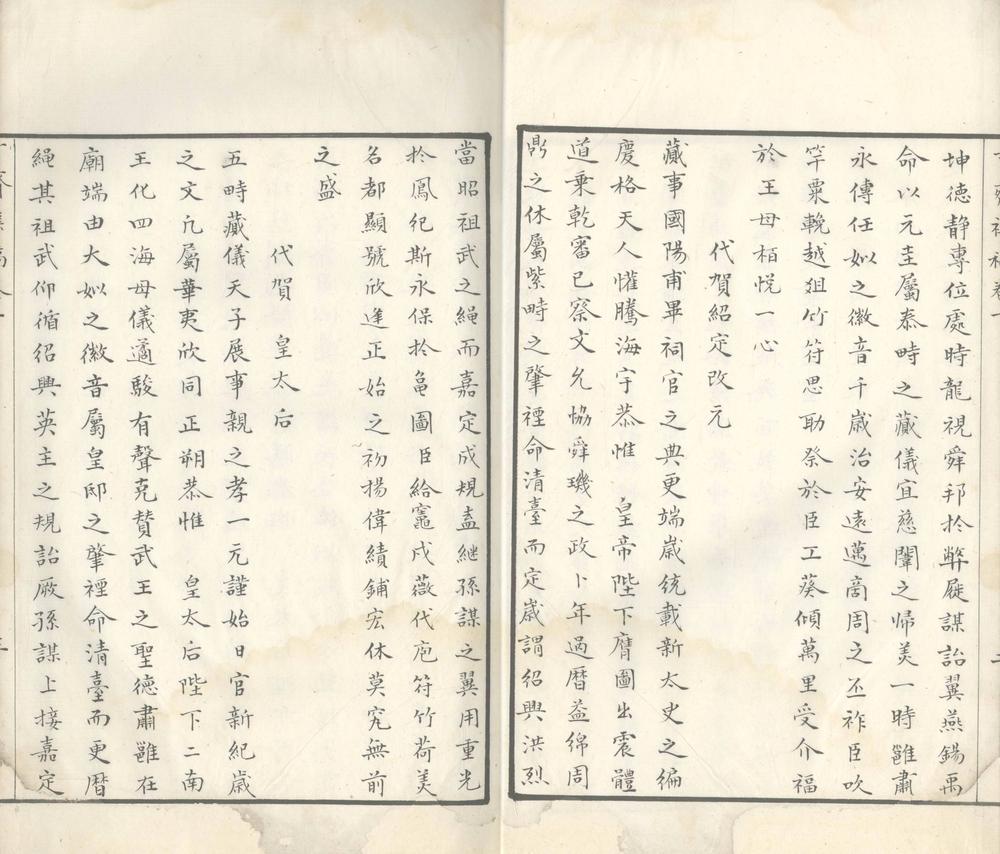 坤德静專位處時龍視舜邦扵弊屣謀詒翼燕錫禹
命以元圭屬泰畤之蕆儀宜慈闈之帰羙一時雝肅
永傳任姒之徽音千歲治安遠邁啇周之丕祚臣吹
竽粟輓越俎竹符思助祭於臣工葵傾萬里受介福
於王母栢悅一心
代賀紹定改元
蕆事國陽甫畢祠官之典更端歲統載新太史之編
慶格天人懽騰海宇恭惟 皇帝陛下膺圖出震體
道乗乾審已察文允恊舜璣之政卜年過曆益綿周
鼎之休屬紫畤之肇禋命清臺而定歲謂紹興洪烈
當昭祖武之繩而嘉定成規盍継孫謀之翼用重光
扵鳳紀斯永保扵龜圖臣給竈戍薇代庖符竹荷羙
名都顯號欣逢正始之初揚偉績鋪宏休莫究無前
之盛
代賀 皇太后
五畤蕆儀天子展事親之孝一元謹始日官新紀歲
之文凡屬華夷欣同正朔恭惟 皇太后陛下二南
王化四海母儀遹駿有聲克賛武王之聖德肅雝在
廟端由大姒之徽音屬皇邸之肇禋命清臺而更曆
繩其祖武仰循紹興英主之規詒厥孫謀上接嘉定